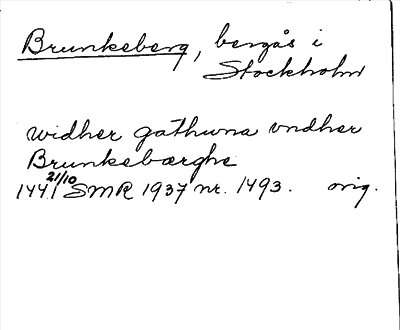 Brunkeberg, bergås i
Stockholm
widher gathwna vndher
Brunkebærghe
1441 21/10 SMR 1937 nr. 1493. orig.